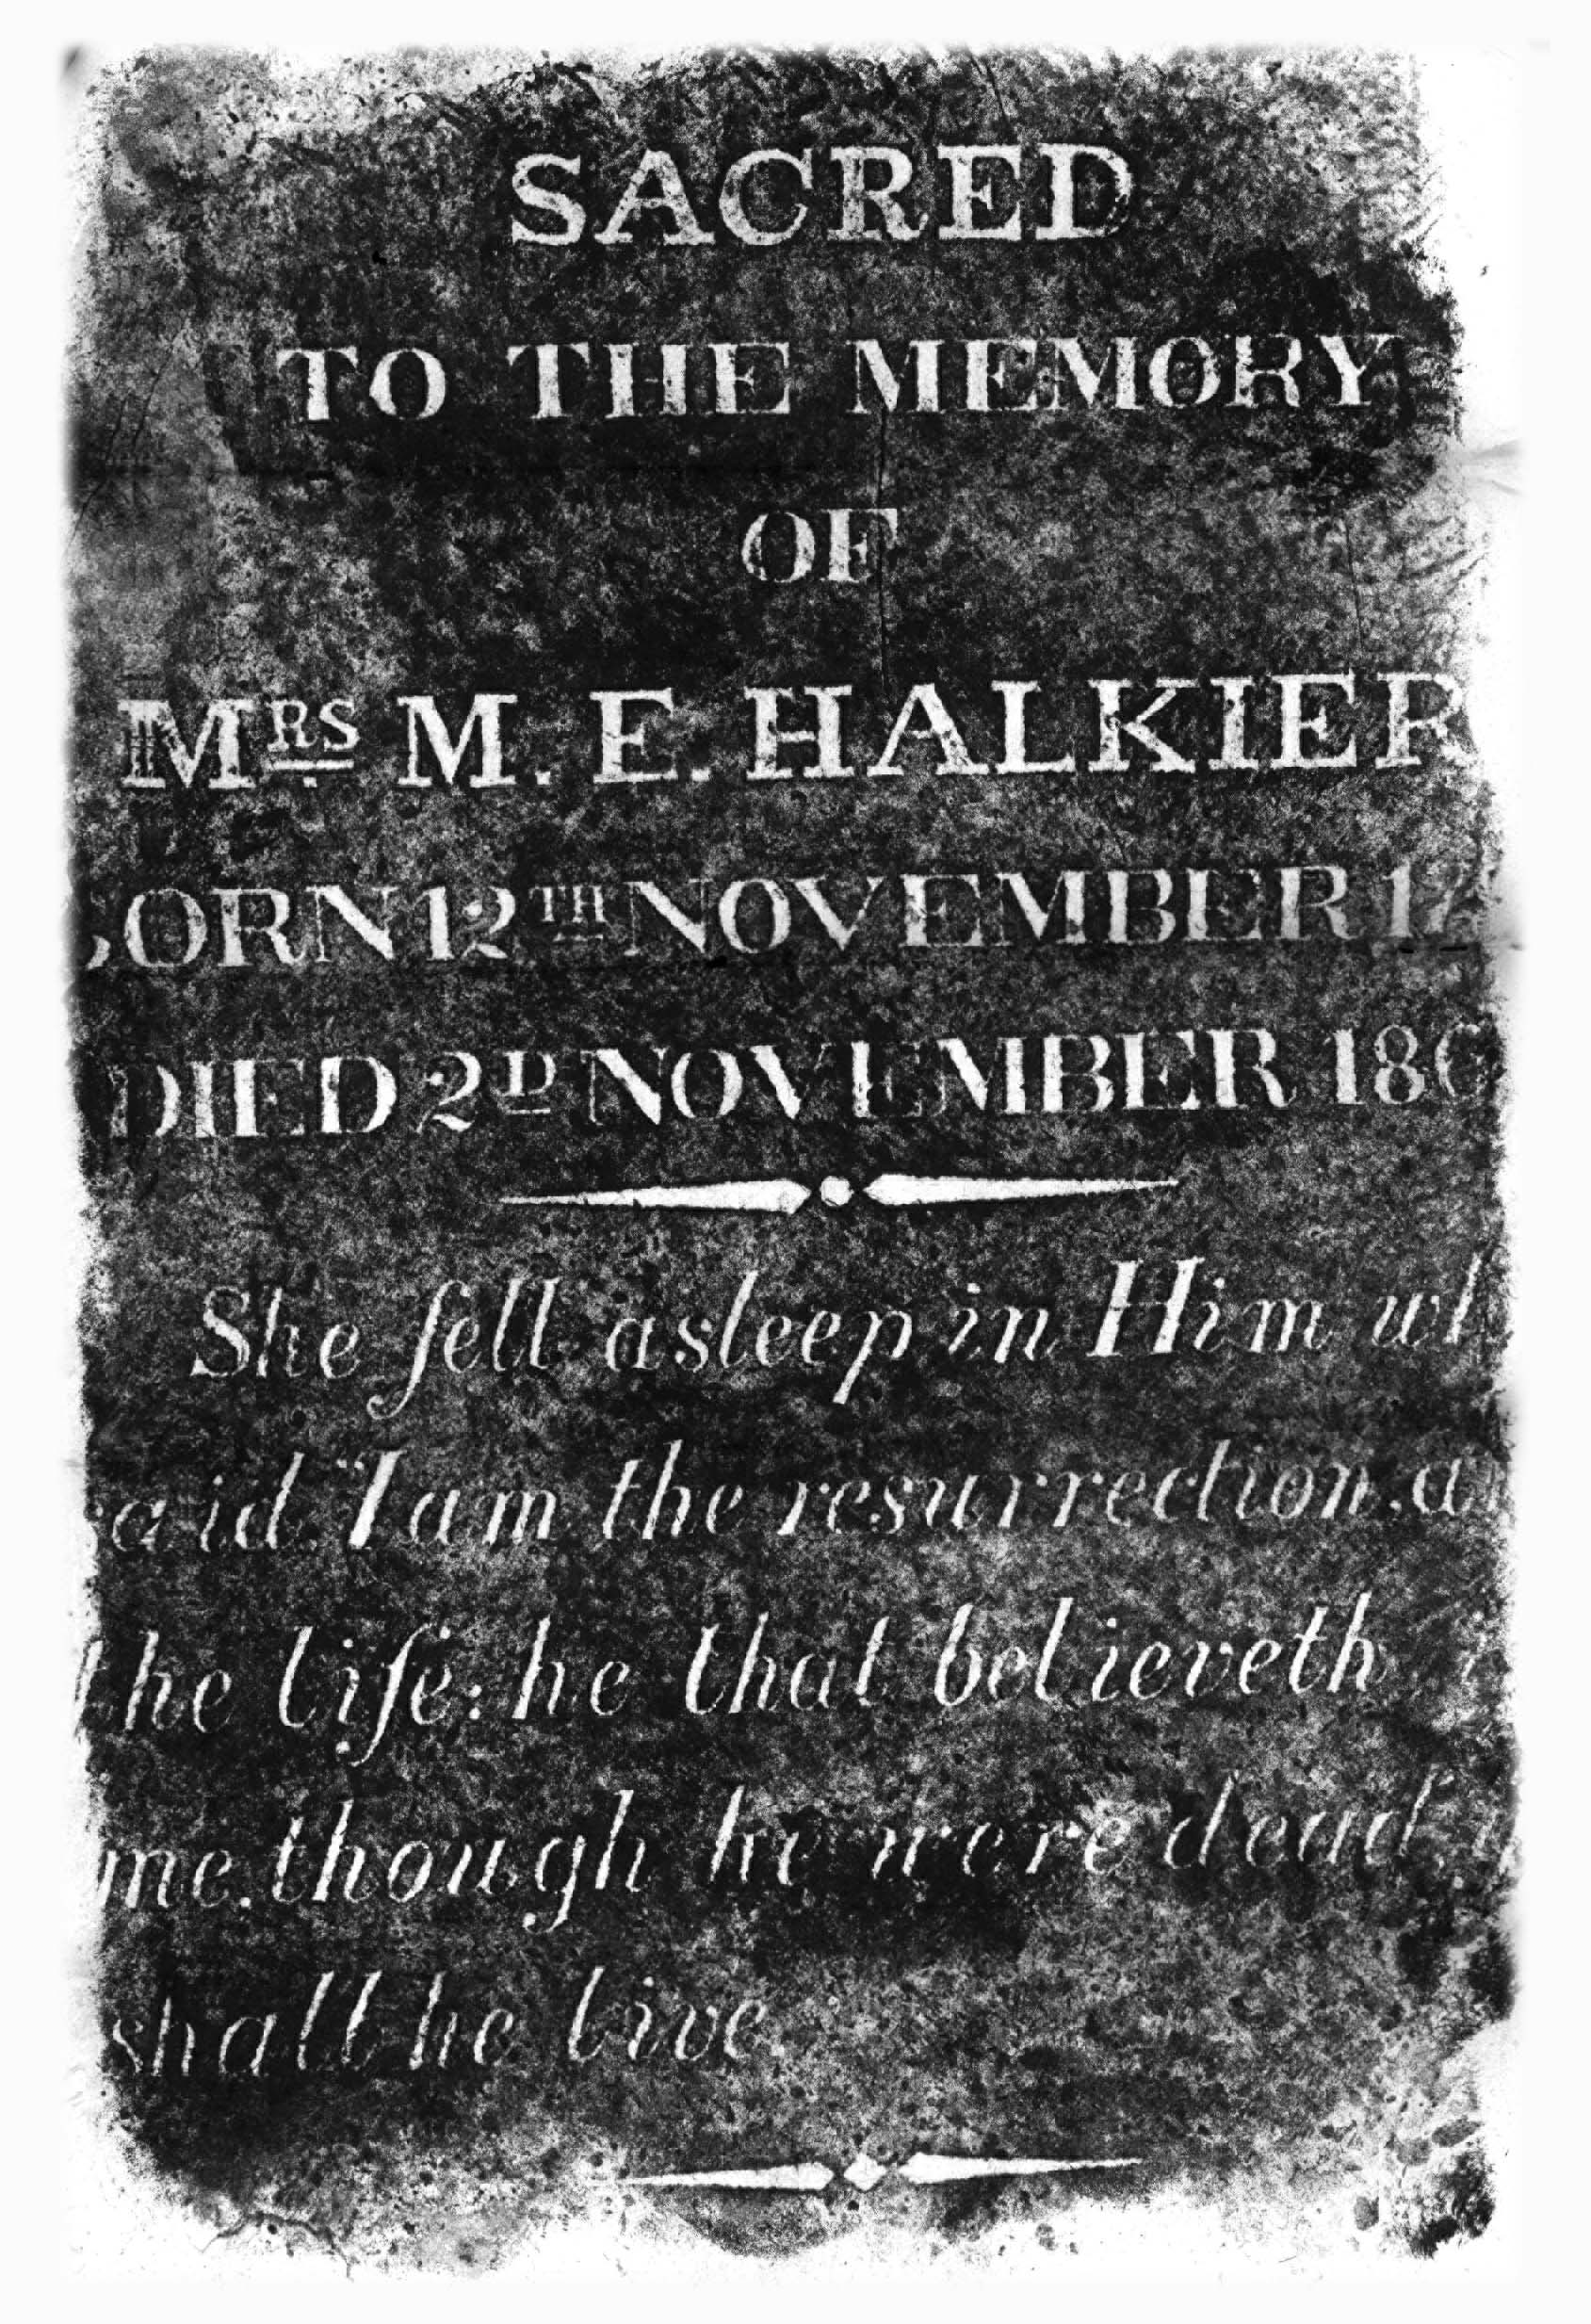 SACRED
TO THE MEMORY
OF
MRS M. E. HALKIER
BORN 12TH NOVEMBER
DIED 2D NOVEMBER
She fell asleep in Him
said. "I am the resurrection, and
the life: he that believeth
me. though he were dead,
shall he live.